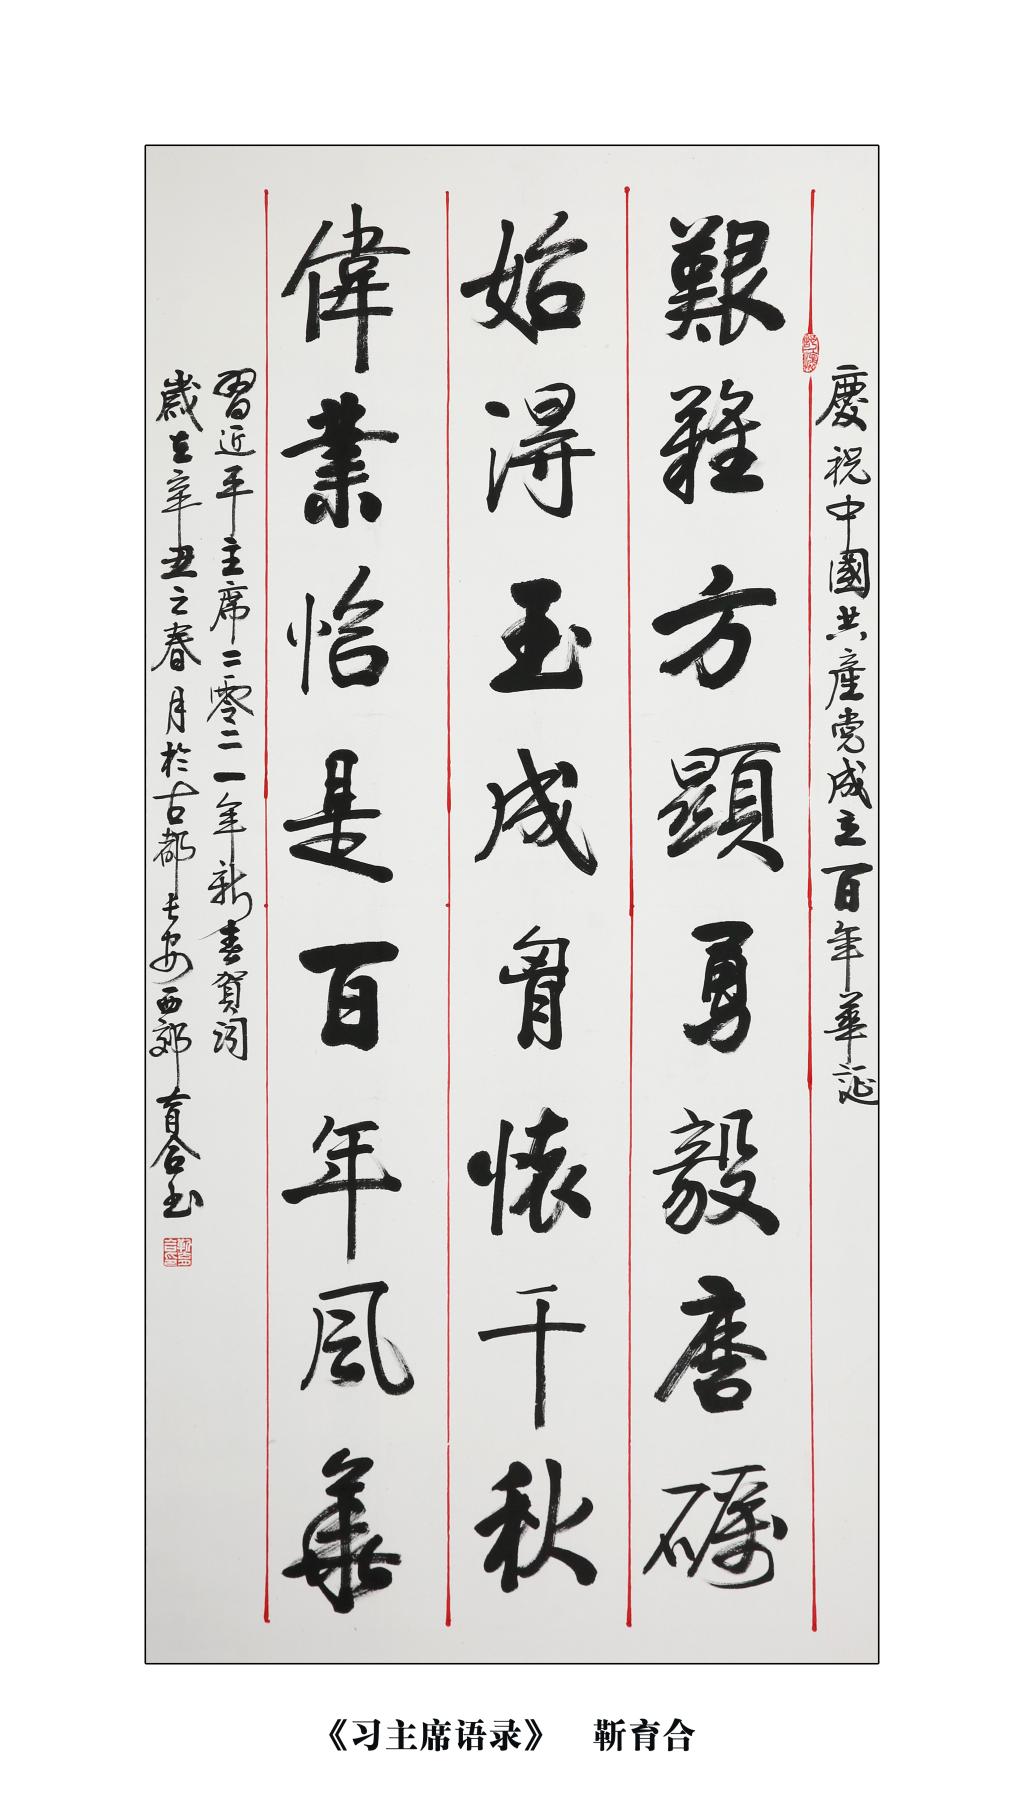 慶祝中國共產党成立百年華誕
艱難方顯勇毅磨礪
始得玉成胷懷千秋
偉業恰是百年风華
習近平主席二零二一年新春賀词
歲在辛丑之春月於古都长安西郊育合书
《习主席语录》 靳育合